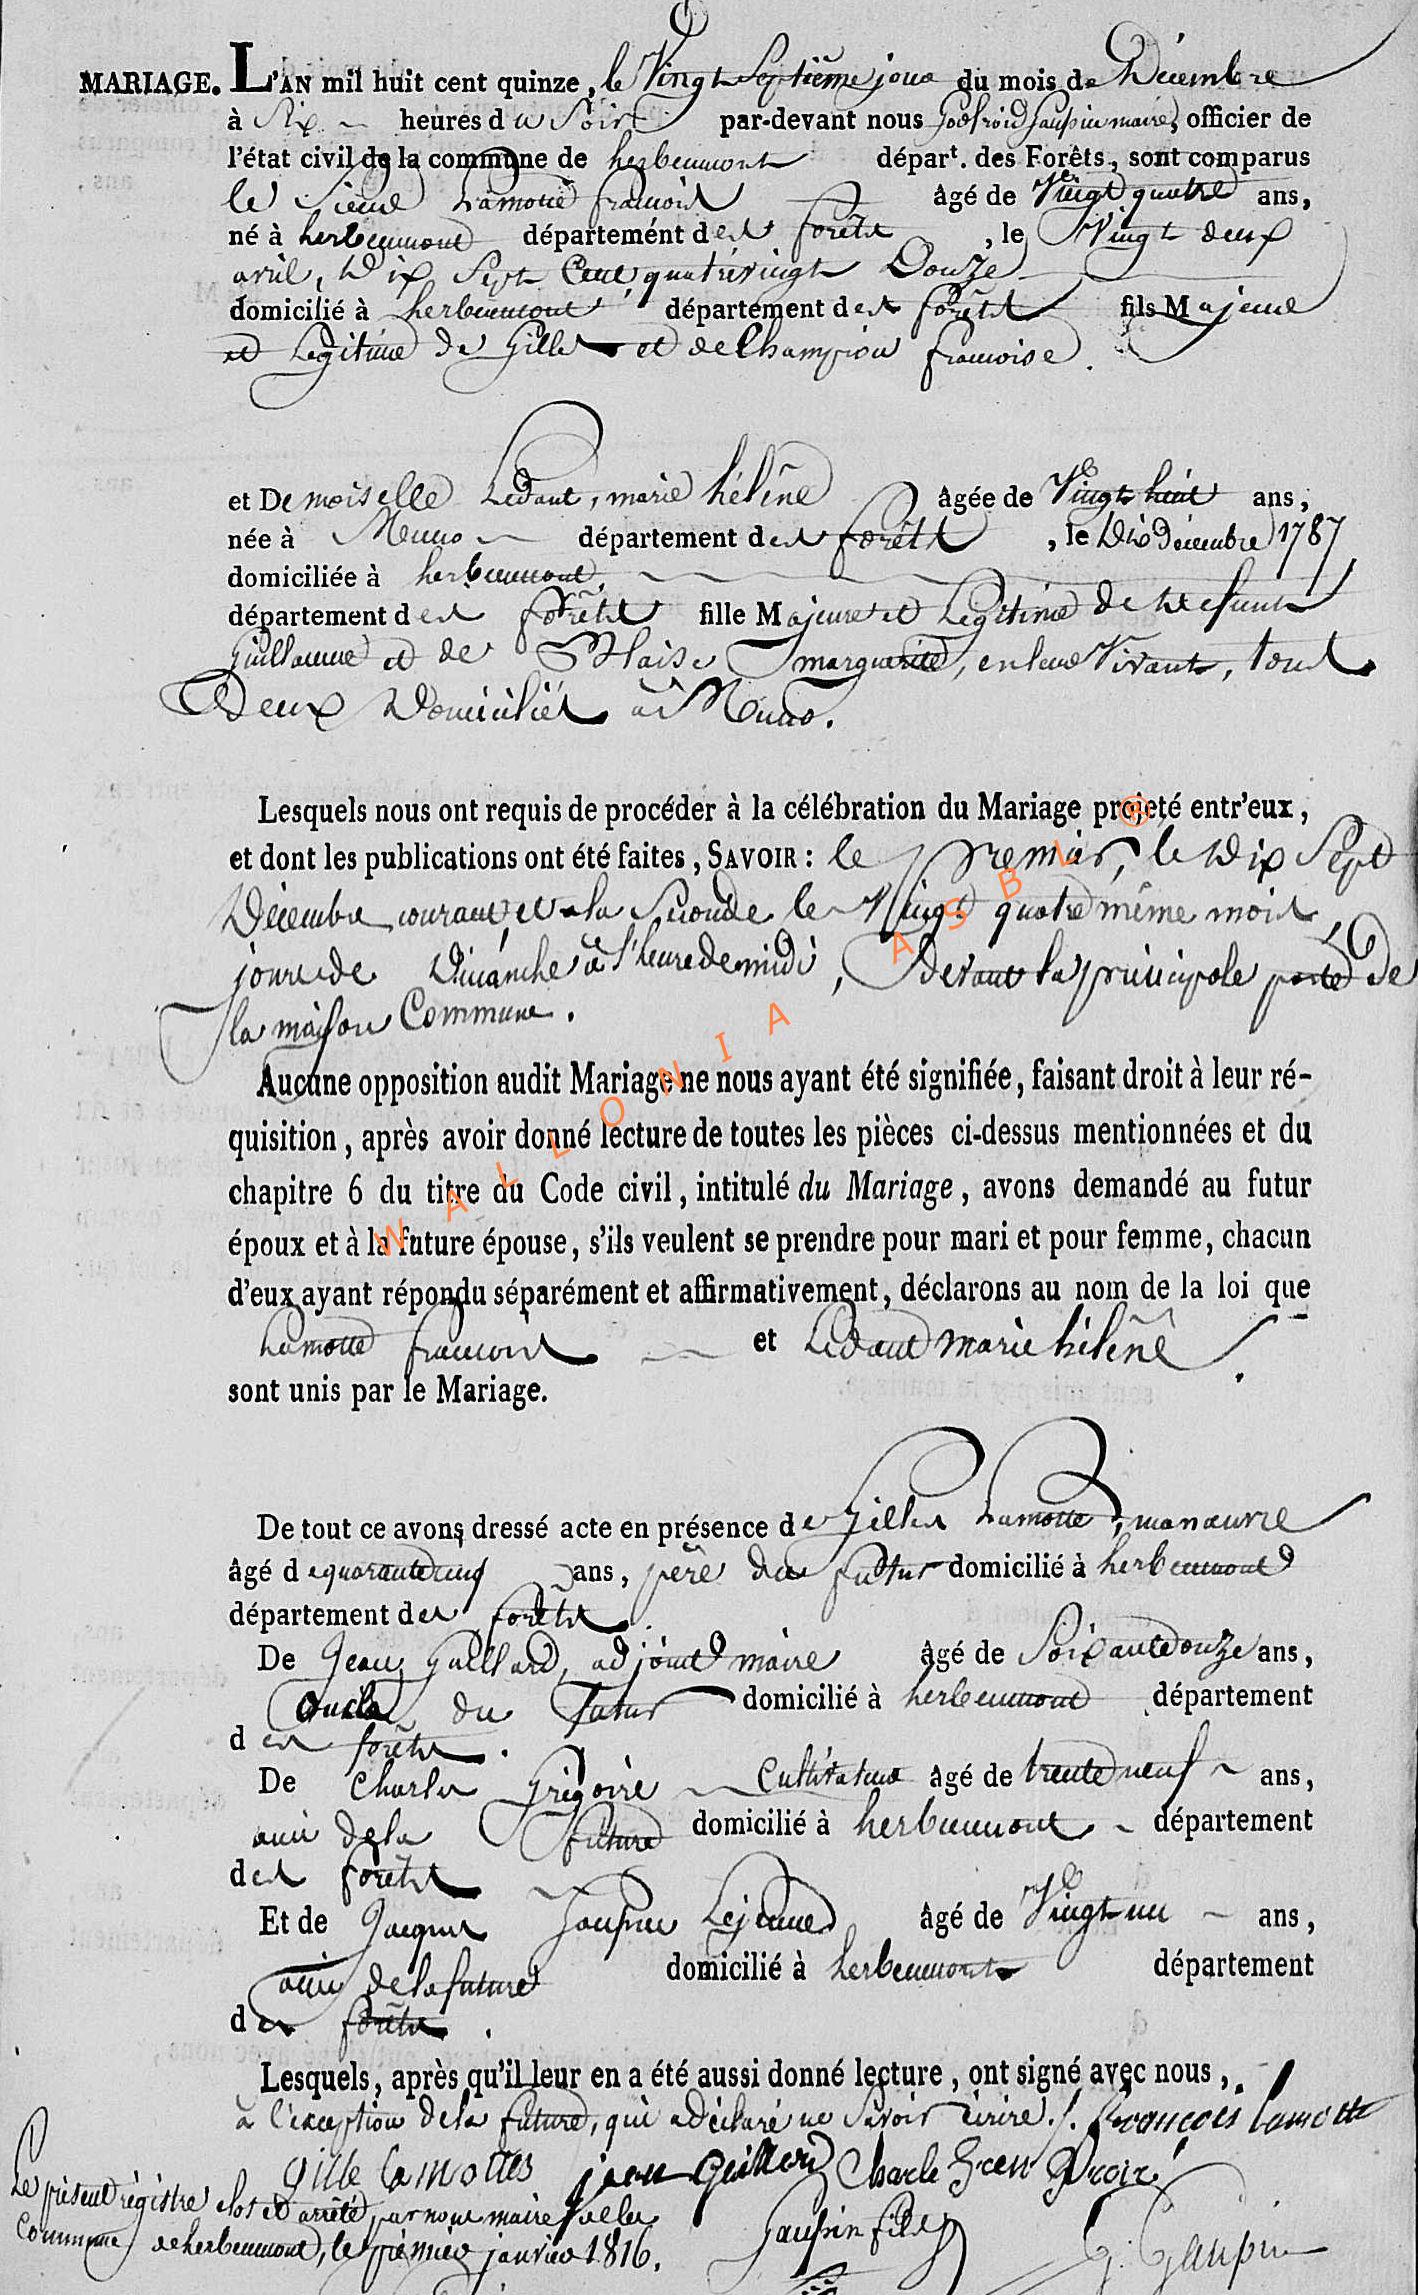 MARIAGE. L'AN mil huit cent quinze, le Vingt Septième jour du mois de Décembre
à Six heures du Soir par-devant nous Godfroid Jaupin maire, officier de
l'état civil de la commune de herbeumont départ. des Forêts, sont comparus
le Sieur Lamotte francois âgé de Vingt quatre ans,
né à herbeumont département des forêts, le Vingt deux
avril, Dix Sept Cent quatrevingt Douze
domicilié à herbeumont département des forêts fils Majeur
et Legitime de Gille et de Champion francoise.
et Demoiselle Ledant, marie hélène âgée de Vingt huit ans,
née à Muno département des forêts, le Dix Décembre 1787
domiciliée à herbeumont,
département des forêts fille Majeure et Legitime de Defunts
Guillaume et de Blaise marguerite, en leur Vivant, tous
Deux Domiciliés à Muno.
Lesquels nous ont requis de procéder à la célébration du Mariage projeté entr'eux,
et dont les publications ont été faites, SAVOIR : le Premier, le Dix Sept
Décembre courant, et la Seconde le Vingt quatre même mois,
jours de Dimanche à l'heure de midi, devant la principale porte de
la maison Commune.
Aucune opposition audit Mariage ne nous ayant été signifiée, faisant droit à leur ré-
quisition, après avoir donné lecture de toutes les pièces ci-dessus mentionnées et du
chapitre 6 du titre du Code civil, intitulé du Mariage, avons demandé au futur
époux et à la future épouse, s'ils veulent se prendre pour mari et pour femme, chacun
d'eux ayant répondu séparément et affirmativement, déclarons au nom de la loi que
Lamotte francois et Ledant marie hélène.
sont unis par le Mariage.
De tout ce avons dressé acte en présence de Gilles Lamotte, manœuvre
âgé de quarante cinq ans, père du futur domicilié à herbeumont
département des forêts.
De Jean Guillard, adjoint maire âgé de Soixante onze ans,
oncle du futur domicilié à herbeumont département
des forêts.
De Charles Grégoire Cultivateur âgé de trente neuf ans,
ami de la future domicilié à herbeumont département
des forêts
Et de Jacques Jaupin Lejeune âgé de Vingt un ans,
ami de la future domicilié à herbeumont département
des forêts.
Lesquels, après qu'il leur en a été aussi donné lecture, ont signé avec nous,
à l'exception de la future, qui a déclaré ne Savoir écrire. francois lamotte
gille lamottes jean Guillard Charle
Le présent régistre clos et arrêté, par nous maire de la
Commune de herbeumont, le premier janvier 1816. Jaupin fils G. Gaupin
WALLONIA ASBL ®